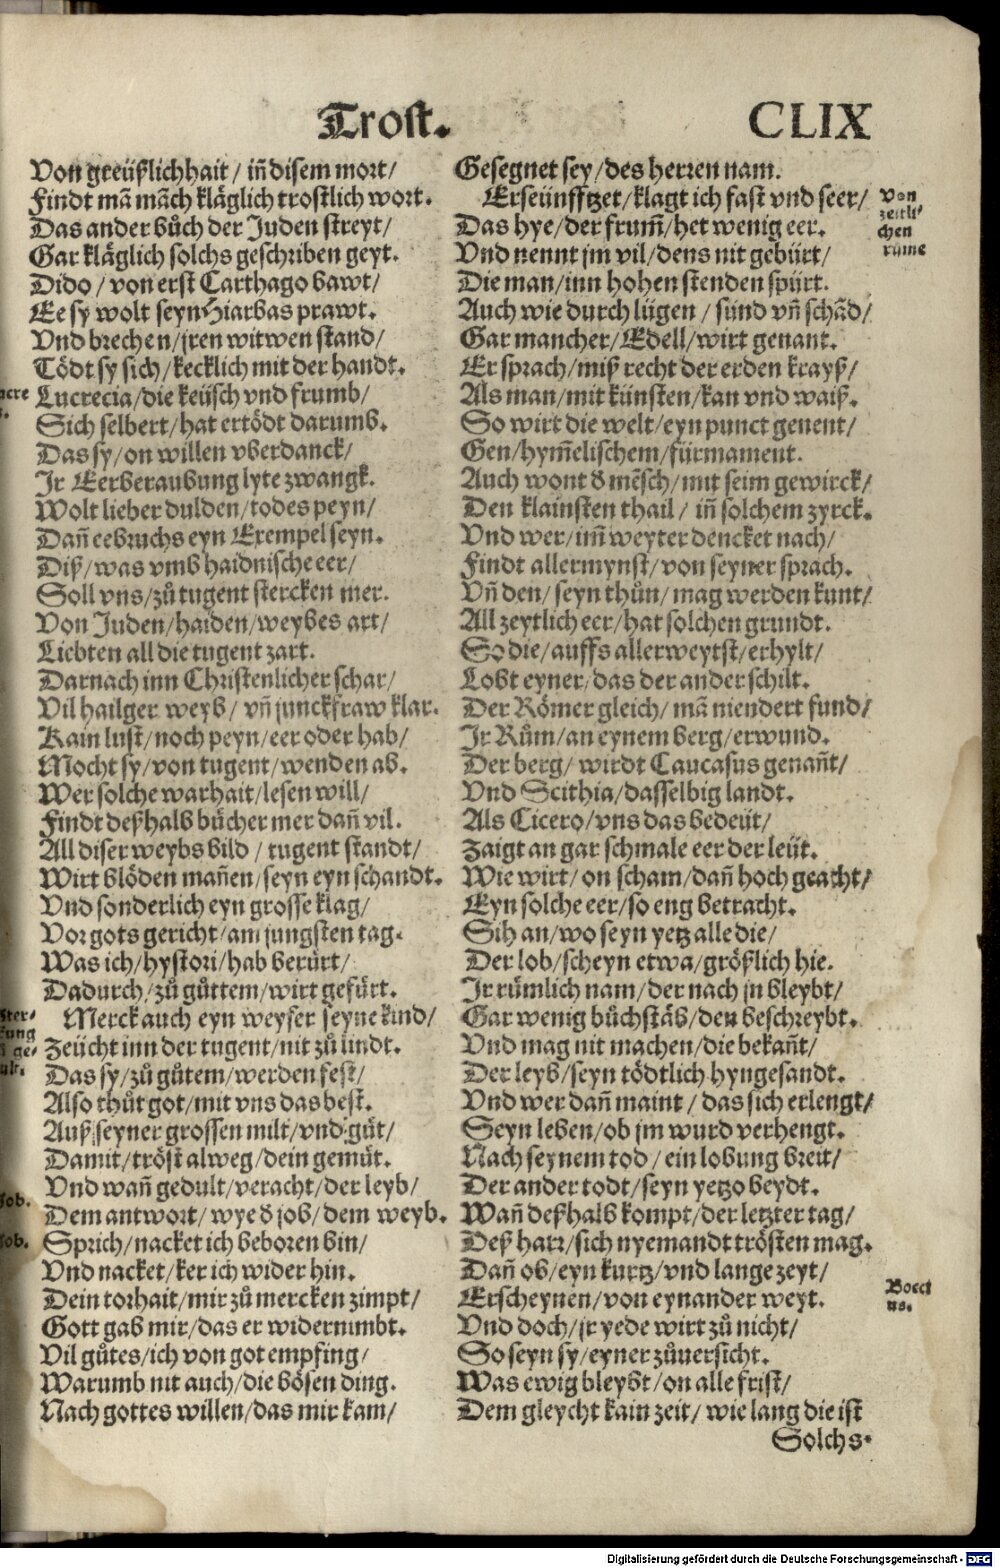 Trost. CLIX
Von greüßlichhait / iñ disem mort/
Findt mã mãch kläglich trostlich wort.
Das ander bůch der Juden streyt/
Gar kläglich solchs geschriben geyt.
Dido / von erst Carthago bawt/
Ee sy wolt seyn Hiarbas prawt.
Vnd brechen/jren witwen stand/
Tödt sy sich/kecklich mit der handt.
Lucrecia/die keüsch vnd frumb/
Sich selbert/hat ertödt darumb.
Das sy/on willen vberdanck/
Jr Eerberaubung lyte zwangk.
Wolt lieber dulden/todes peyn/
Dañ eebruchs eyn Exempel seyn.
Diß/was vmb haidnische eer/
Soll vns/zů tugent stercken mer.
Von Juden/haiden/weybes art/
Liebten all die tugent zart.
Darnach inn Christenlicher schar/
Vil hailger weyb/ vñ junckfraw klar.
Kain lust/noch peyn/eer oder hab/
Mocht sy/von tugent/wenden ab.
Wer solche warhait/lesen will/
Findt deßhalb bücher mer dañ vil.
All diser weybs bild / tugent standt/
Wirt blöden mañen/seyn eyn schandt.
Vnd sonderlich eyn grosse klag/
Vor gots gericht/am jungsten tag.
Was ich/hystori/hab berürt/
Dadurch/zů gůttem/wirt gefürt.
Merck auch eyn weyser seyne kind/
Zeücht inn der tugent/nit zů lindt.
Das sy/zů gůtem/werden fest/
Also thůt got/mit vns das best.
Auß seyner grossen milt/vnd güt/
Damit/tröst alweg/dein gemüt.
Vnd wañ gedult/veracht/der leyb/
Dem antwort/wye d job/dem weyb.
Sprich/nacket ich geboren bin/
Vnd nacket/ker ich wider hin.
Dein torhait/mir zů mercken zimpt/
Gott gab mir/das er widernimbt.
Vil gůtes/ich von got empfing/
Warumb nit auch/die bösen ding.
Nach gottes willen/das mir kam/
Gesegnet sey/des herren nam.
Erseünfftzet/klagt ich fast vnd seer/
Das hye/der frum̃/het wenig eer.
Vnd nennt jm vil/dens nit gebürt/
Die man/inn hohen stenden spürt.
Auch wie durch lügen / sünd vñ schãd/
Gar mancher/Edell/wirt genant.
Er sprach/miß recht der erden krayß/
Als man/mit künsten/kan vnd waiß.
So wirt die welt/eyn punct genent/
Gen/hym̃elischem/fürmament.
Auch wont d mẽsch/mit seim gewirck/
Den klainsten thail / iñ solchem zyrck.
Vnd wer/im̃ weyter dencket nach/
Findt allermynst/von seyner sprach.
Vñ den/seyn thůn/mag werden kunt/
All zeytlich eer/hat solchen grundt.
So die/auffs allerweytst/erhylt/
Lobt eyner/das der ander schilt.
Der Römer gleich/mã niendert fund/
Jr Rům/an eynem berg/erwund.
Der berg/ wirdt Caucasus genañt/
Vnd Scithia/dasselbig landt.
Als Cicero/vns das bedeüt/
Zaigt an gar schmale eer der leüt.
Wie wirt/on scham/dañ hoch geacht/
Eyn solche eer/so eng betracht.
Sih an/wo seyn yetz alle die/
Der lob/scheyn etwa/größlich hie.
Jr rümlich nam/der nach jn bleybt/
Gar wenig bůchstãb/den beschreybt.
Vnd mag nit machen/die bekañt/
Der leyb/seyn tödtlich hyngesandt.
Vnd wer dañ maint / das sich erlengt/
Seyn leben/ob jm wurd verhengt.
Nach seynem tod / ein lobung breit/
Der ander todt/seyn yetzo beydt.
Wañ deßhalb kompt/der letzter tag/
Deß harr/sich nyemandt trösten mag.
Dañ ob/eyn kurtz/vnd lange zeyt/
Erscheynen/von eynander weyt.
Vnd doch/jr yede wirt zů nicht/
So seyn sy/eyner zůuersicht.
Was ewig bleybt/on alle frist/
Dem gleycht kain zeit/ wie lang die ist
Solchs.
Von
zeitli-
chen
rume
Boeti
us.
Job.
Job.
Digitalisierung gefördert durch die Deutsche Forschungsgemeinschaft - DFG